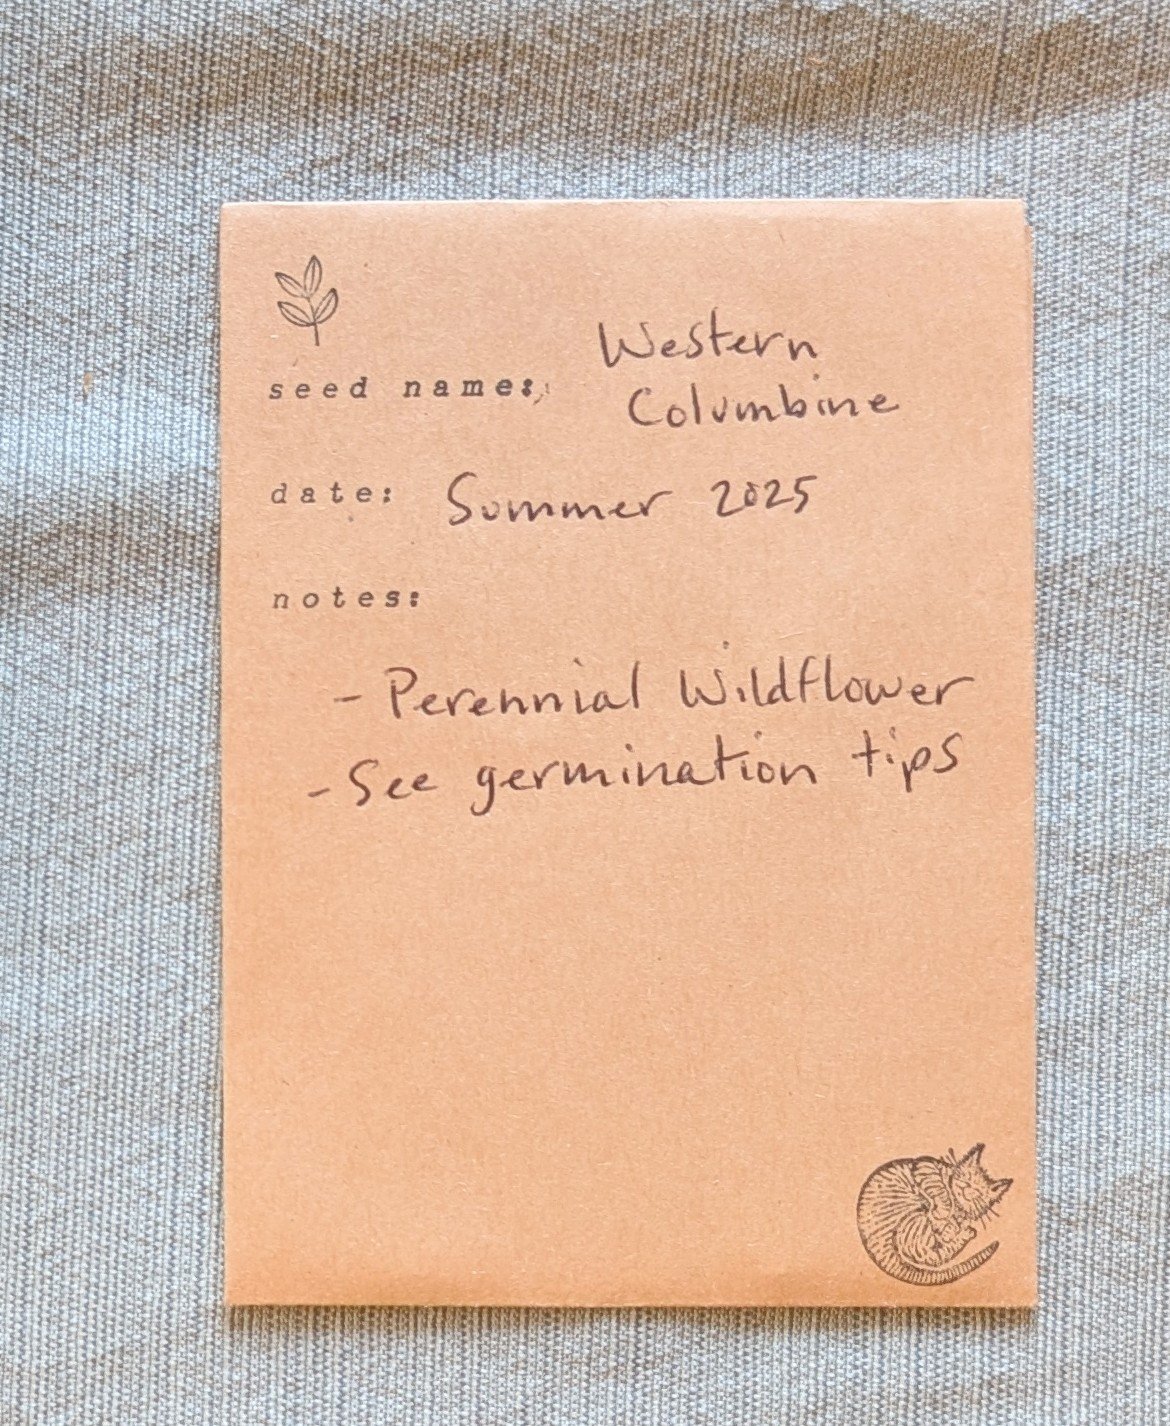 Western
seed name: Columbine
date: Summer 2025
notes:
- Perennial Wildflower
- See germination tips